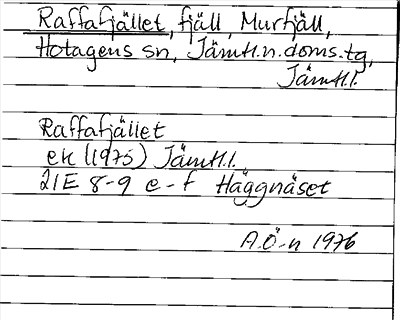 Raffafjället, fjäll, Murfjäll,
Hotagens sn, Jämtl.n.doms.tg,
Jämtl.l.
Raffafjället
ek (1975) Jämtl.l.
21E 8-9 e-f Häggnäset
A.Ö-n 1976